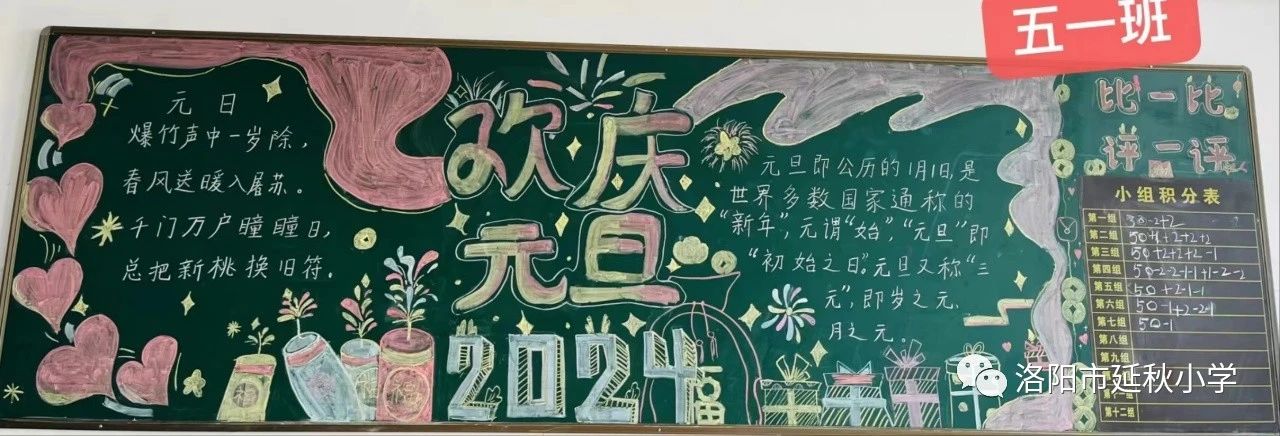 五一班
元日
爆竹声中一岁除，
春风送暖入屠苏。
千门万户瞳瞳日，
总把新桃换旧符。
欢庆
元旦
2024
福
元旦即公历的1月1日，是
世界多数国家通称的
“新年”，元谓“始”，“元旦”即
“初始之日”。元旦又称“三
元”，即岁之元，
月之元。
比一比
评一评
小组积分表
第一组
第二组 50+4+2+2+2
第三组 50+2+2+2-1
第四组
第五组 50+2-1-1
第六组
第七组 50-1
第八组
第九组
第十二组
洛阳市延秋小学